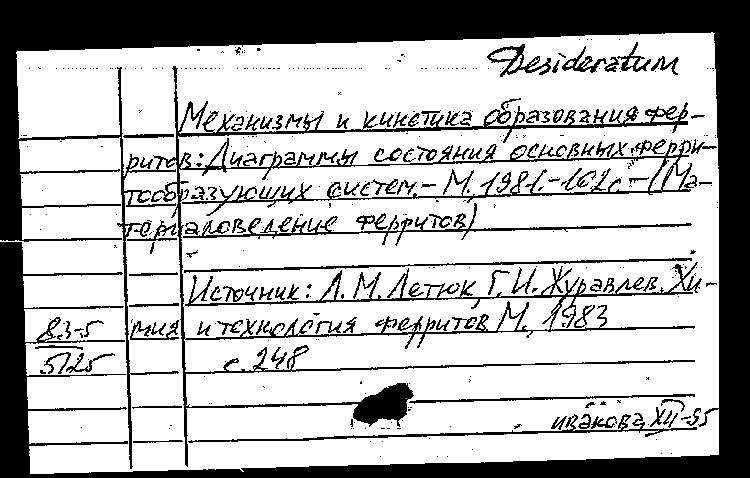 Desideratum
Механизмы и кинетика образования фер-
ритов: Диаграммы состояния основных ферри-
тообразующих систем.- М., 1981.-162с.- (Ма-
териаловедение ферритов)
Источник: Л.М. Летюк, Г.И. Журавлев. Хи-
83-5 мия и технология ферритов М., 1983
5125 с. 248
ивакова, XII-95